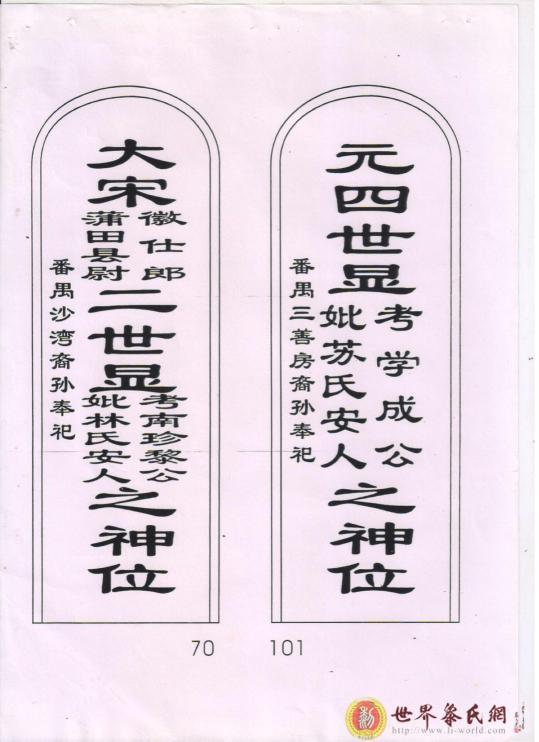 元四世显
考学成公
妣苏氏安人
之神位
番禺三善房裔孙奉祀
101
大宋
徵仕郎
蒲田县尉
二世显
考南珍黎公
妣林氏安人
之神位
番禺沙湾裔孙奉祀
70
世界黎氏網
http://www.li-world.com